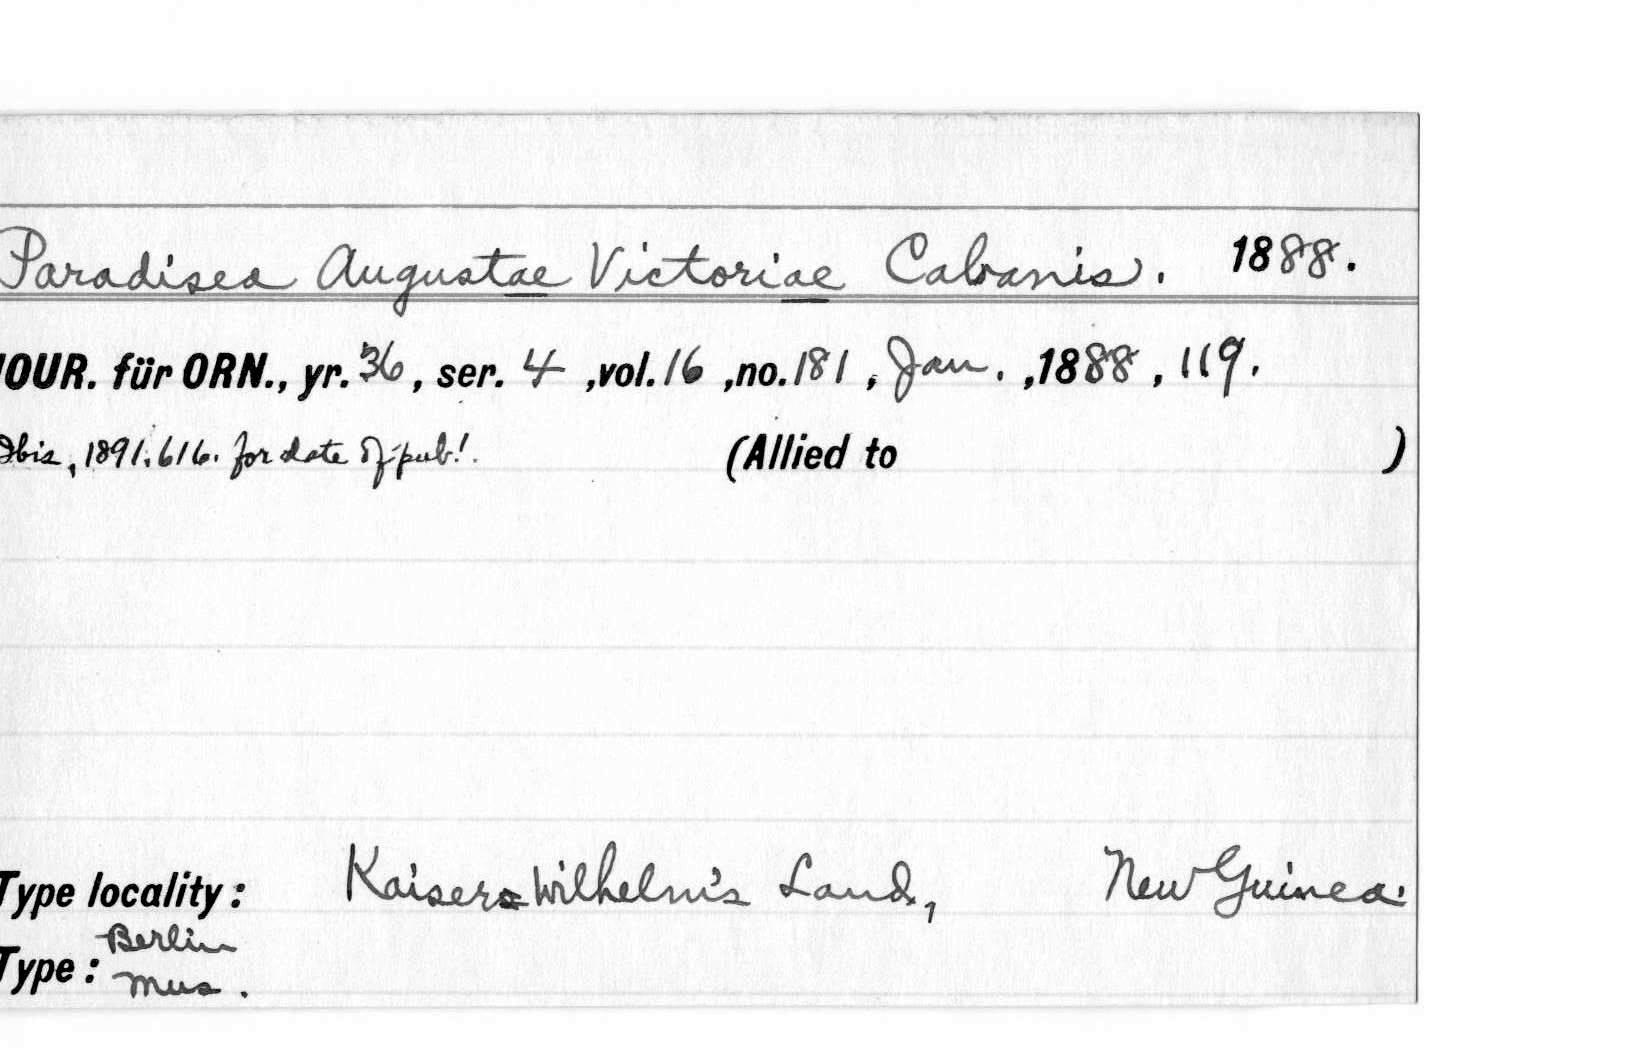 Paradisea Augustae Victoriae Cabanis. 1888.
JOUR. für ORN., yr. 36, ser. 4, vol. 16, no. 181, Jan., 1888, 119.
Ibis, 1891, 616. for date of pub!. (Allied to )
Type locality: Kaisers Wilhelm's Land, New Guinea.
Berlin
Type: Mus.